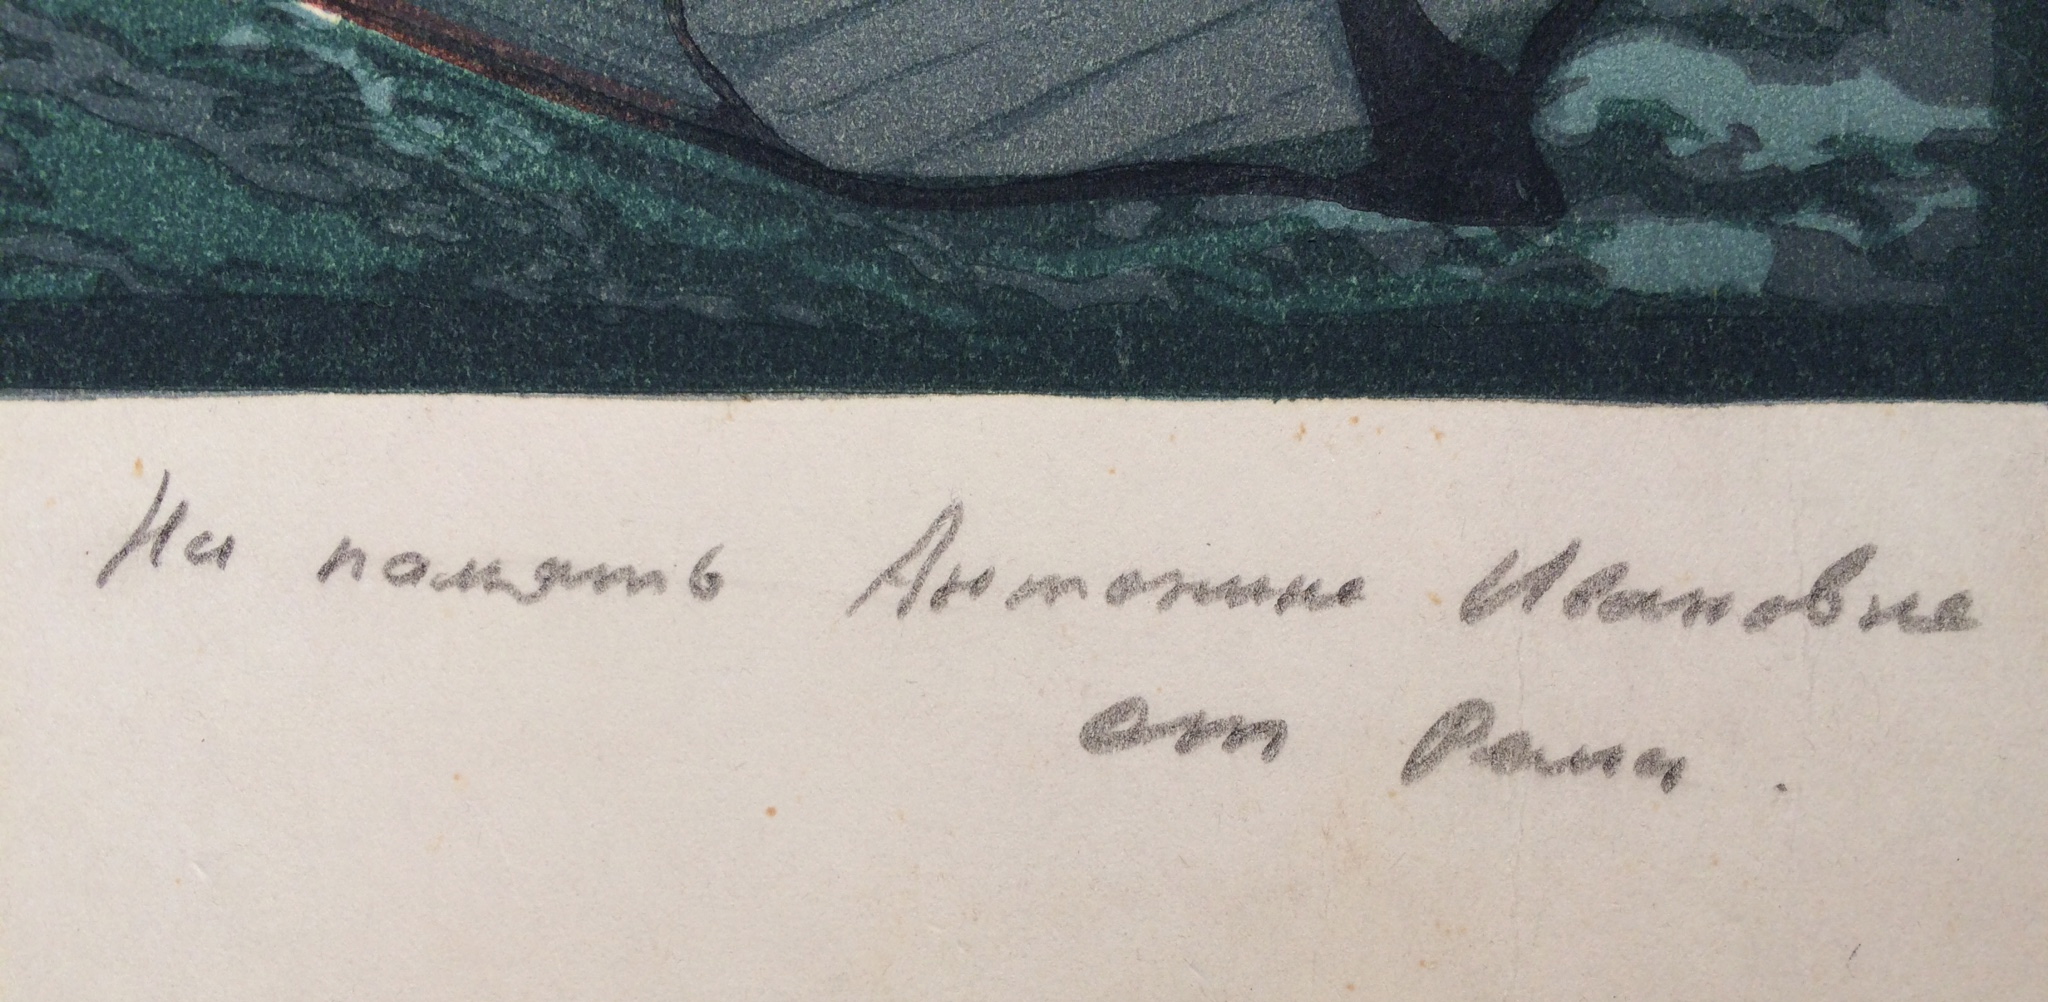 На память Антонине Ивановне
от Рами.